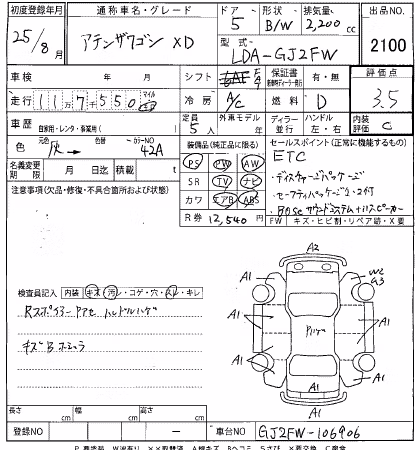 初度登録年月 通称車名・グレード ドア 形状 排気量 出品NO.
25/8月 アテンザワゴン XD 5 B/W 2,200cc 2100
型式 LDA-GJ2FW
車検 年 月 シフト FA 保証書 有・無 評価点
走行 117550 マイル km 冷房 A/C 燃料 D 3.5
車歴 自家用・レンタ・事業用( ) 定員 5人 外車モデル ディーラー 並行 ハンドル 左・右 内装評価 C
色 灰→ 色替 カラーNO 42A 装備品(純正品に限る) セールスポイント(正常に機能するもの)
名義変更期限 月 日迄 積載 t PS PW AW ETC
注意事項(欠品・修復・不具合箇所および状態) SR TV ナビ ・ディスチャージパッケージ
カワ エアB ABS ・セーフティパッケージ
R券 12,540円 ・BOSEサウンドシステム+11スピーカー
FW キズ・ヒビ割・リペア跡・X要
検査員記入 内装 キズ・汚レ・コゲ・穴・スレ・キレ
Rスポイラー アセ ハンドルハゲ
キズ
A2
A1 A1 W2
A3
A1 A1
A1 A1
A1
A1
長さ cm 幅 cm 高さ cm
登録NO ー 車台NO GJ2FW-106906